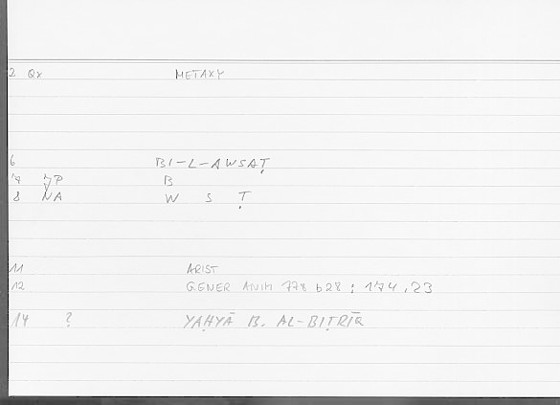 2 Qx METAXY
6 BI-L-AWSAṬ
7 ȷP B
8 NA W S Ṭ
11 ARIST
12 GENER ANIM 778 b28 : 174,23
14 ? YAḤYĀ B. AL-BIṬRĪQ